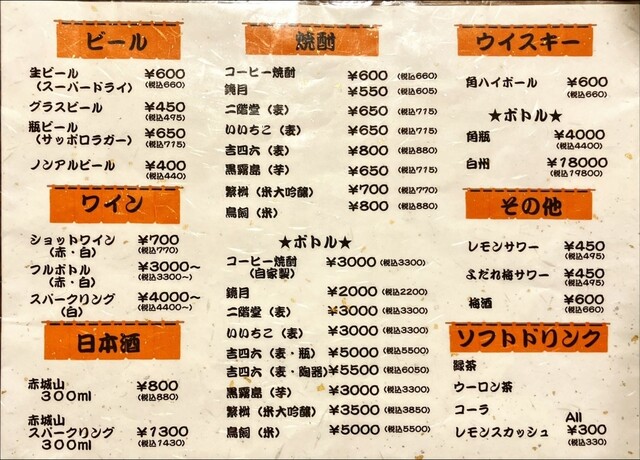 ビール
生ビール ¥600
（スーパードライ） (税込660)
グラスビール ¥450
(税込495)
瓶ビール ¥650
（サッポロラガー） (税込715)
ノンアルビール ¥400
(税込440)
ワイン
ショットワイン ¥700
（赤・白） (税込770)
フルボトル ¥3000〜
（赤・白） (税込3300〜)
スパークリング ¥4000〜
（白） (税込4400〜)
日本酒
赤城山 ¥800
300ml (税込880)
赤城山
スパークリング ¥1300
300ml (税込1430)
焼酎
コーヒー焼酎 ¥600 (税込660)
鏡月 ¥550 (税込605)
二階堂（麦） ¥650 (税込715)
いいちこ（麦） ¥650 (税込715)
吉四六（麦） ¥800 (税込880)
黒霧島（芋） ¥650 (税込715)
繁桝（米大吟醸） ¥700 (税込770)
鳥飼（米） ¥800 (税込880)
★ボトル★
コーヒー焼酎 ¥3000 (税込3300)
（自家製）
鏡月 ¥2000 (税込2200)
二階堂（麦） ¥3000 (税込3300)
いいちこ（麦） ¥3000 (税込3300)
吉四六（麦・瓶） ¥5000 (税込5500)
吉四六（麦・陶器） ¥5500 (税込6050)
黒霧島（芋） ¥3000 (税込3300)
繁桝（米大吟醸） ¥3500 (税込3850)
鳥飼（米） ¥5000 (税込5500)
ウイスキー
角ハイボール ¥600
(税込660)
★ボトル★
角瓶 ¥4000
(税込4400)
白州 ¥18000
(税込19800)
その他
レモンサワー ¥450
(税込495)
よだれ梅サワー ¥450
(税込495)
梅酒 ¥600
(税込660)
ソフトドリンク
緑茶
ウーロン茶
コーラ All
レモンスカッシュ ¥300
(税込330)